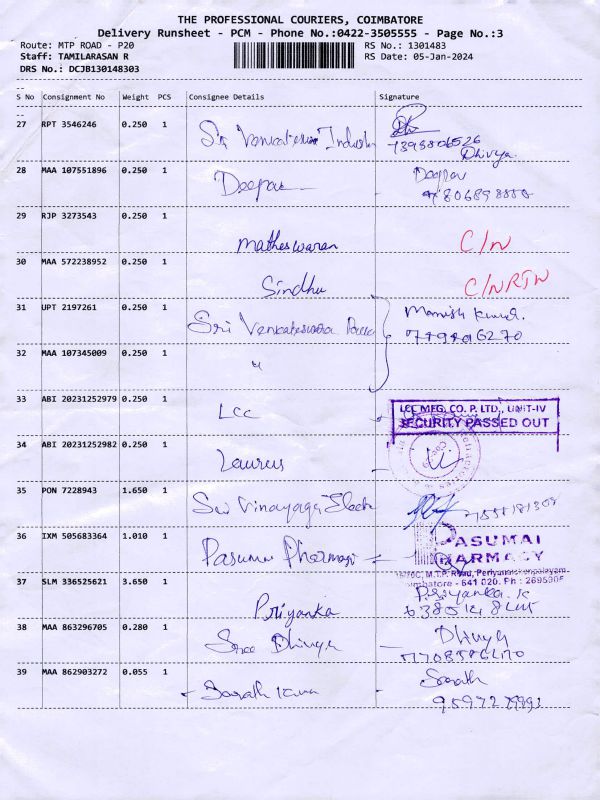 THE PROFESSIONAL COURIERS, COIMBATORE
Delivery Runsheet - PCM - Phone No.:0422-3505555 - Page No.:3
Route: MTP ROAD - P20 RS No.: 1301483
Staff: TAMILARASAN R RS Date: 05-Jan-2024
DRS No.: DCJB130148303
S No Consignment No Weight PCS Consignee Details Signature
27 RPT 3546246 0.250 1 Sri Venkateswara
Dhivya
28 MAA 107551896 0.250 1 Deepan Deepan
29 RJP 3273543 0.250 1
matheswaran C/N
30 MAA 572238952 0.250 1
Sindhu C/NRTN
31 UPT 2197261 0.250 1 Sri Venkateswara Manish Kumar.
32 MAA 107345009 0.250 1 "
33 ABI 20231252979 0.250 1 LCC
LCC MFG. CO. P. LTD., UNIT-IV
SECURITY PASSED OUT
34 ABI 20231252982 0.250 1 Laurus
35 PON 7228943 1.650 1 Sri Vinayaga Elect
36 IXM 505683364 1.010 1 Pasumai Pharmacy
PASUMAI
PHARMACY
M.T.P. Road, Periyanaickenpalayam,
Coimbatore - 641 020. Ph : 2695306
37 SLM 336525621 3.650 1 Priyanka Priyanka.K
38 MAA 863296705 0.280 1 Sree Dhivya Dhivya
39 MAA 862903272 0.055 1 Sarath Kumar Sarath